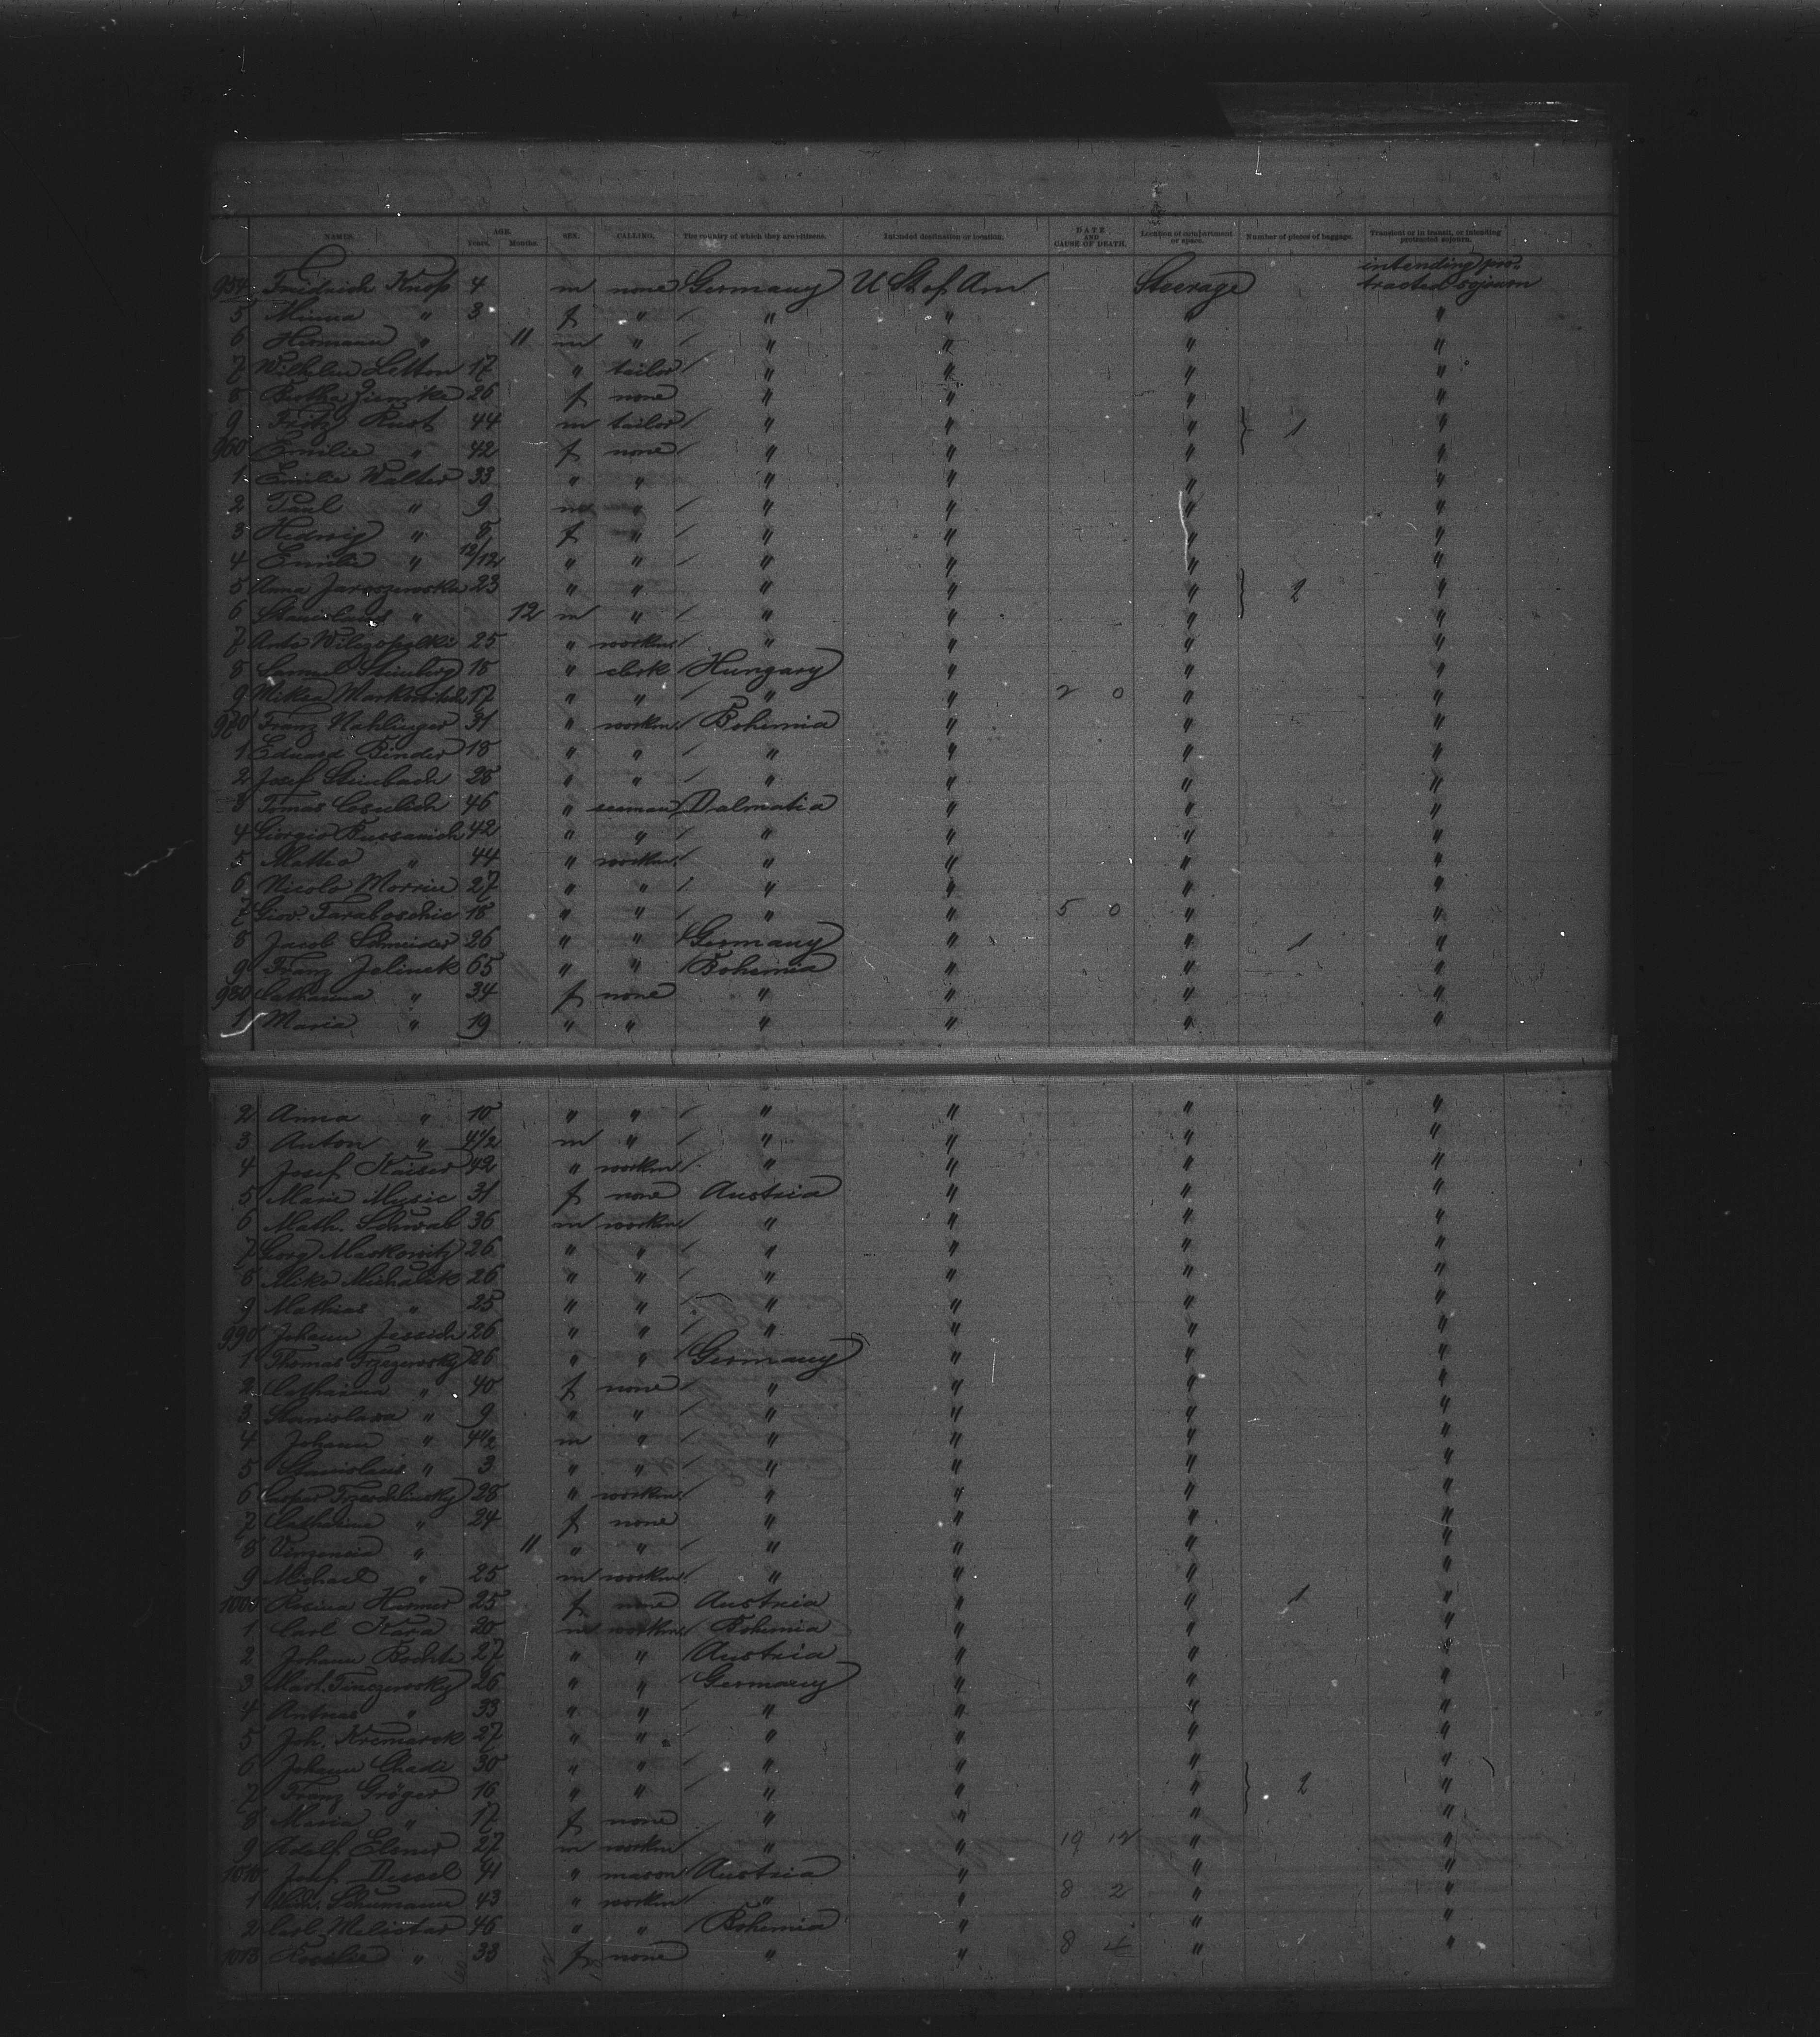 NAMES. AGE. Years. Months. SEX. CALLING. The country of which they are citizens. Intended destination or location. DATE AND CAUSE OF DEATH. Location of compartment or space. Number of pieces of baggage. Transient or in transit, or intending protracted sojourn.
954 Friedrich Knop 4 m none Germany U St of Am Steerage intending pro-tracted sojourn
5 Minna " 3 f " " " " "
6 Hermann " 11 m " " " " "
7 Wilhelm Letton 17 " tailor " " " "
8 Bertha Ziemke 26 f none " " " "
9 Fritz Rust 44 m tailor " " " 1 "
960 Emilie " 42 f none " " " "
1 Emilie Walter 33 " " " " " "
2 Paul " 9 m " " " " "
3 Hedwig " 8 f " " " " "
4 Emilie " 12/12 " " " " " "
5 Anna Jaroszewska 23 " " " " " 2 "
6 Stanislaus " 12 m " " " " "
7 25 " workm. " " " "
8 Samuel Steinberg 18 " clerk Hungary " " "
9 Markowitch 17 " " " " 2 0 " "
970 Franz 31 " workm. Bohemia " " "
1 Eduard Binder 18 " " " " " "
2 Josef Steinbach 28 " " " " " "
3 Tomas Cosulich 46 " seeman Dalmatia " " "
4 Giorgio Bussanich 42 " " " " " "
5 Matteo " 44 " workm. " " " "
6 Nicolo Morrin 27 " " " " " "
7 Giov. Taraboschic 18 " " " " 5 0 " "
8 Jacob Schneider 26 " " Germany " " 1 "
9 Franz Jelinek 65 " " Bohemia " " "
980 Catharina " 34 f none " " " "
1 Maria " 19 " " " " " "
2 Anna " 10 " " " " " "
3 Anton " 4 1/2 m " " " " "
4 Josef Kaiser 42 " workm " " " "
5 Marie Music 31 f none Austria " " "
6 Math. Schwab 36 m workm. " " " "
7 Georg Markowitz 26 " " " " " "
8 Mike Michalik 26 " " " " " "
9 Mathias " 25 " " " " " "
990 Johann Jessich 26 " " " " " "
1 Thomas 26 " " Germany " " "
2 Catharina " 40 f none " " " "
3 Stanislawa " 9 " " " " " "
4 Johann " 4 1/2 m " " " " "
5 Stanislaus " 3 " " " " " "
6 Caspar 28 " workm. " " " "
7 Catharina " 24 f none " " " "
8 Vinzencia " 11 " " " " " "
9 Michael " 25 m workm. " " " "
1000 Rosina 25 f none Austria " " 1 "
1 Carl Kara 20 m workm. Bohemia " " "
2 Johann 27 " " Austria " " "
3 26 " " Germany " " "
4 " 33 " " " " " "
5 Joh. 27 " " " " " "
6 Johann Chadi 30 " " " " " 2 "
7 Franz Gröger 16 " " " " " "
8 Maria " 17 f none " " " "
9 Adolf Elsner 27 m workm " " 19 12 " "
1010 Josef 41 " mason Austria " " "
1 Schumann 43 " workm " " 8 2 " "
2 Carl 46 " " Bohemia " " "
1013 Rosalie " 33 f none " " 8 4 " "